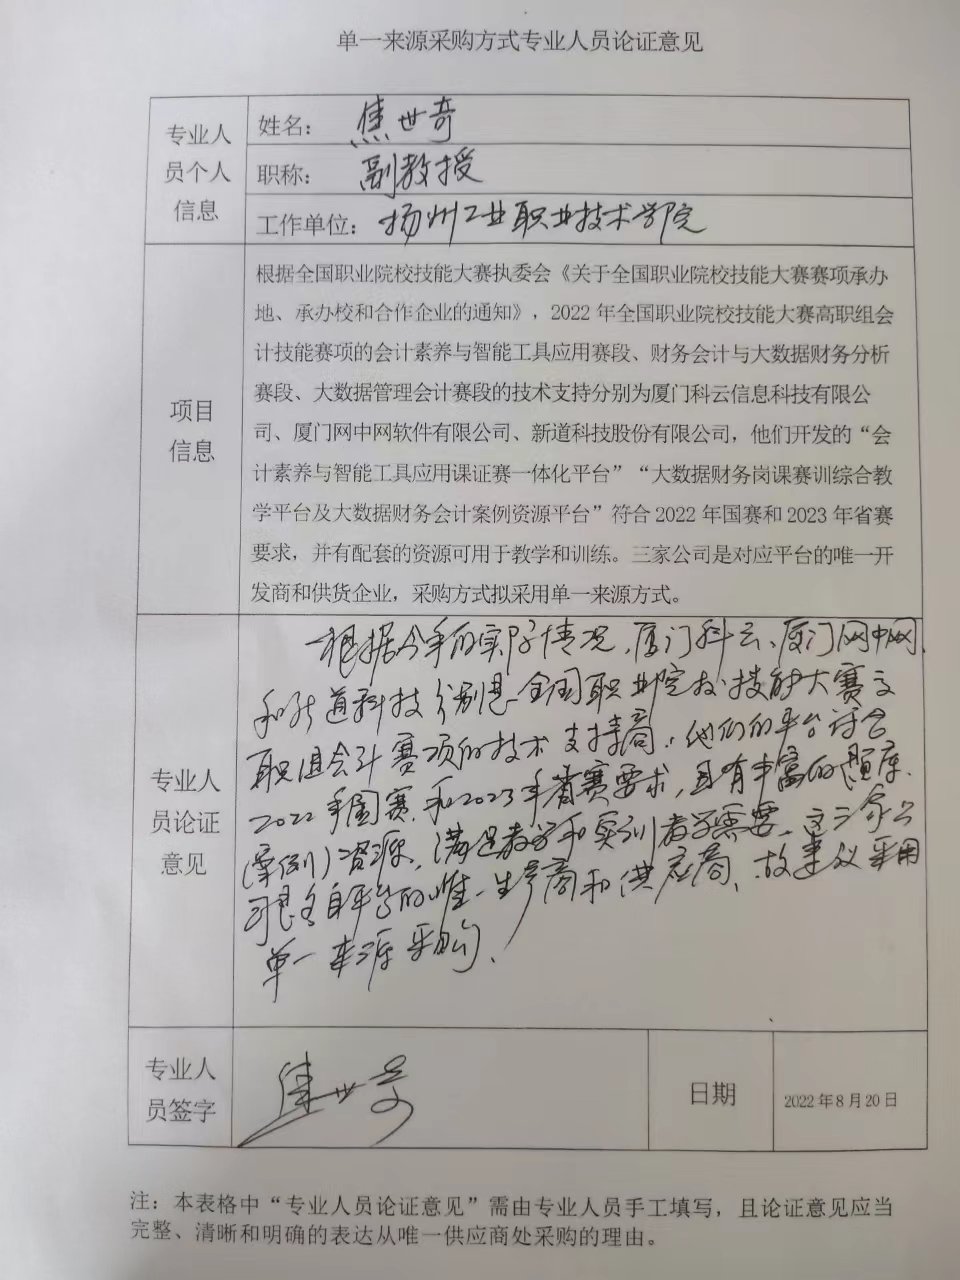 单一来源采购方式专业人员论证意见
专业人
员个人
信息
姓名： 焦世奇
职称： 副教授
工作单位：扬州工业职业技术学院
项目
信息
根据全国职业院校技能大赛执委会《关于全国职业院校技能大赛赛项承办
地、承办校和合作企业的通知》，2022 年全国职业院校技能大赛高职组会
计技能赛项的会计素养与智能工具应用赛段、财务会计与大数据财务分析
赛段、大数据管理会计赛段的技术支持分别为厦门科云信息科技有限公
司、厦门网中网软件有限公司、新道科技股份有限公司，他们开发的“会
计素养与智能工具应用课证赛一体化平台”“大数据财务岗课赛训综合教
学平台及大数据财务会计案例资源平台”符合 2022 年国赛和 2023 年省赛
要求，并有配套的资源可用于教学和训练。三家公司是对应平台的唯一开
发商和供货企业，采购方式拟采用单一来源方式。
专业人
员论证
意见
根据今年的实际情况，厦门科云、厦门网中网
和新道科技分别是全国职业院校技能大赛高
职组会计赛项的技术支持商，他们的平台符合
2022年国赛和2023年省赛要求，且有丰富的题库
（案例）资源，满足教学和实训教学需要，这三家公
司是各自平台的唯一生产商和供应商，故建议采用
单一来源采购。
专业人
员签字
焦世奇
日期
2022 年 8 月 20 日
注：本表格中“专业人员论证意见”需由专业人员手工填写，且论证意见应当
完整、清晰和明确的表达从唯一供应商处采购的理由。